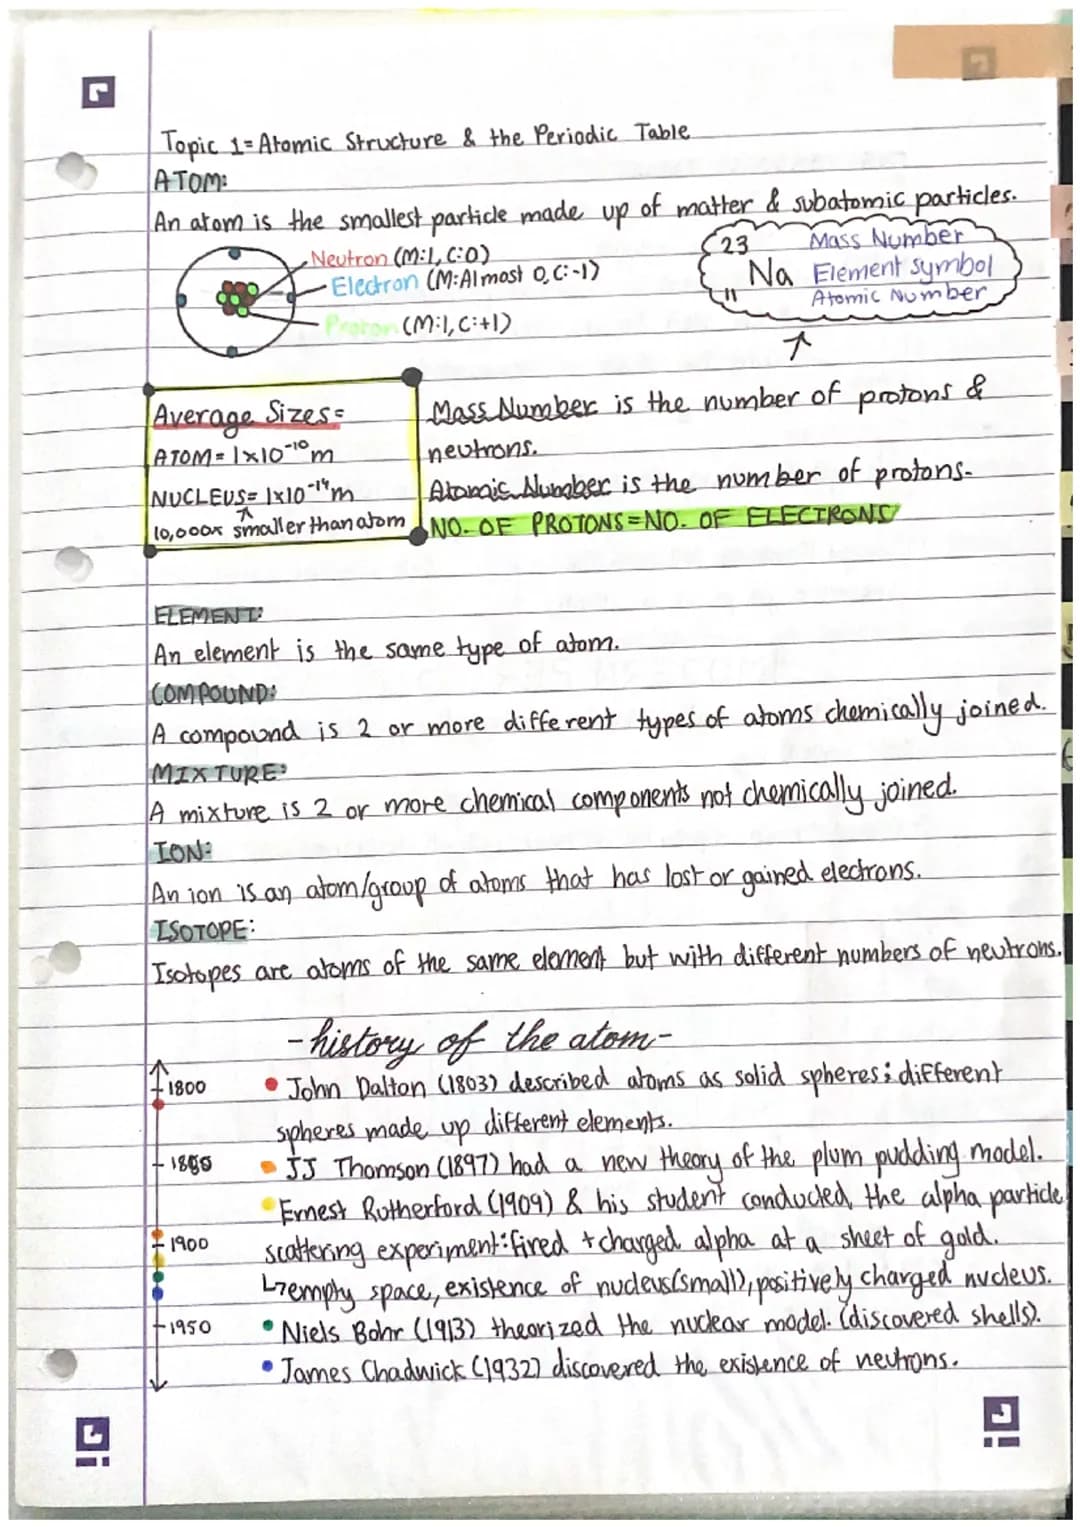 Topic 1= Atomic Structure & the Periodic Table
ATOM:
An atom is the smallest particle made up of matter & subatomic particles.
Neutron (M:1, C:0)
Electron (M:Almost 0, C:-1)
Proton (M:1, C:+1)
23 Mass Number
Na Element symbol
11 Atomic Number
Average Sizes=
ATOM= 1x10⁻¹⁰m
NUCLEUS= 1x10⁻¹⁴m
10,000x smaller than atom
Mass Number is the number of protons &
neutrons.
Atomic Number is the number of protons.
NO. OF PROTONS=NO. OF ELECTRONS
ELEMENT:
An element is the same type of atom.
COMPOUND:
A compound is 2 or more different types of atoms chemically joined.
MIXTURE:
A mixture is 2 or more chemical components not chemically joined.
ION:
An ion is an atom/group of atoms that has lost or gained electrons.
ISOTOPE:
Isotopes are atoms of the same element but with different numbers of neutrons.
-history of the atom-
1800
1850
1900
1950
• John Dalton (1803) described atoms as solid spheres; different
spheres made up different elements.
• JJ Thomson (1897) had a new theory of the plum pudding model.
• Ernest Rutherford (1909) & his student conducted the alpha particle
scattering experiment: fired +charged alpha at a sheet of gold.
↳empty space, existence of nucleus(small), positively charged nucleus.
• Niels Bohr (1913) theorized the nuclear model. (discovered shells).
• James Chadwick (1932) discovered the existence of neutrons.